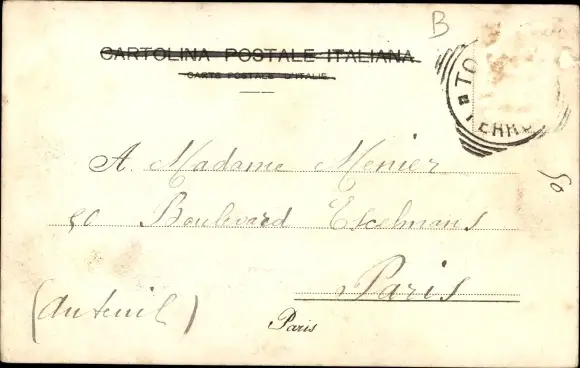 B
CARTOLINA POSTALE ITALIANA
CARTE POSTALE D'ITALIE
TO
FERR
A. Madame Menier
50
90 Boulevard Excelmans
Paris
(Auteuil)
Paris